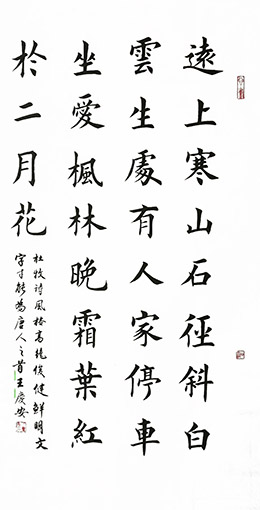 遠上寒山石徑斜白
雲生處有人家停車
坐愛楓林晚霜葉紅
於二月花
杜牧詩風格高俊健鮮明文
字能為唐人之首王慶安